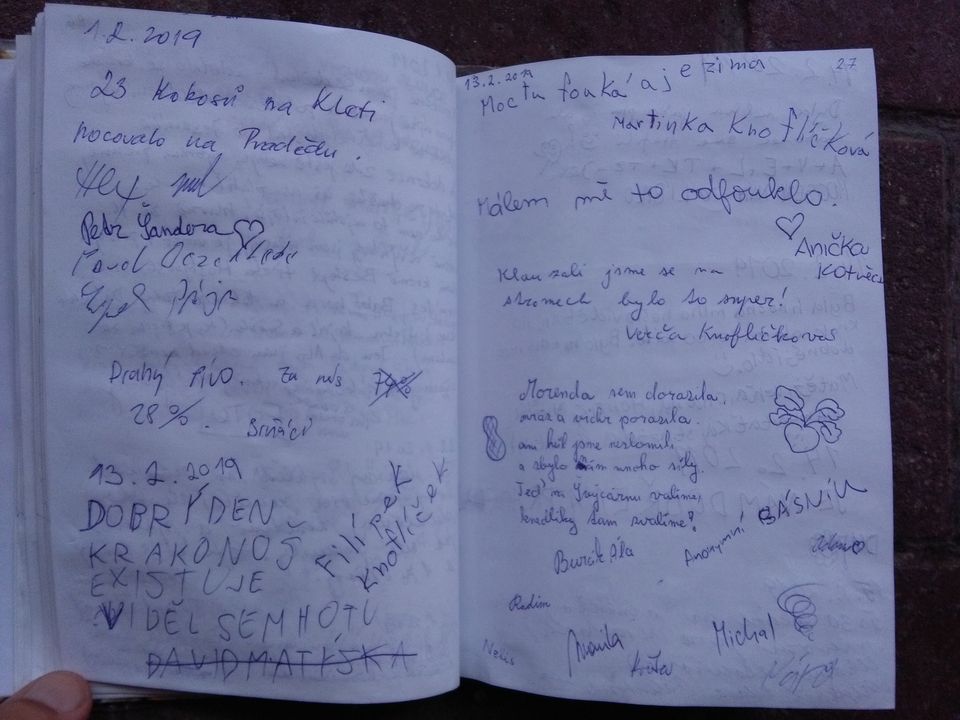 1.2.2019
23 Kokosů na Kleti
nocovalo na Pradědu.
Petr Šandera
Pavel
Drahý pivo. Za nás 74%
28%.
13.2.2019
DOBRÝ DEN
KRAKONOŠ
EXISTUJE
VIDĚL SEM HO TU
DAVID MATYSKA
Filípek
Knoflíček
13.2.2019
27
Moc tu fouká a je zima
Martinka Knoflíčková
Málem mě to odfouklo.
Anička
Kotvěca
Klouzali jsme se na
stromech bylo to super!
Verča Knoflíčková
Morenda sem dorazila,
mráz a vichr porazila.
ani hůl jsme nezlomili
a zbylo nám mnoho síly.
Teď na Švýcárnu valíme,
knedlíky tam svalíme?
Anonymní BÁSNÍK
Radim
Michal